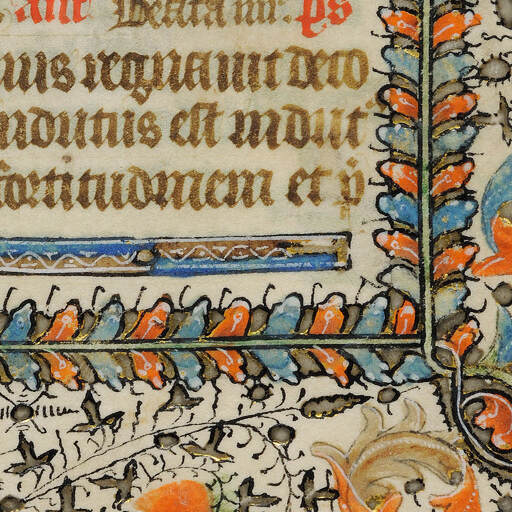 ant Beata mr. ps
nus regnauit deco
ndutus est indut
fortitudinem et p̄